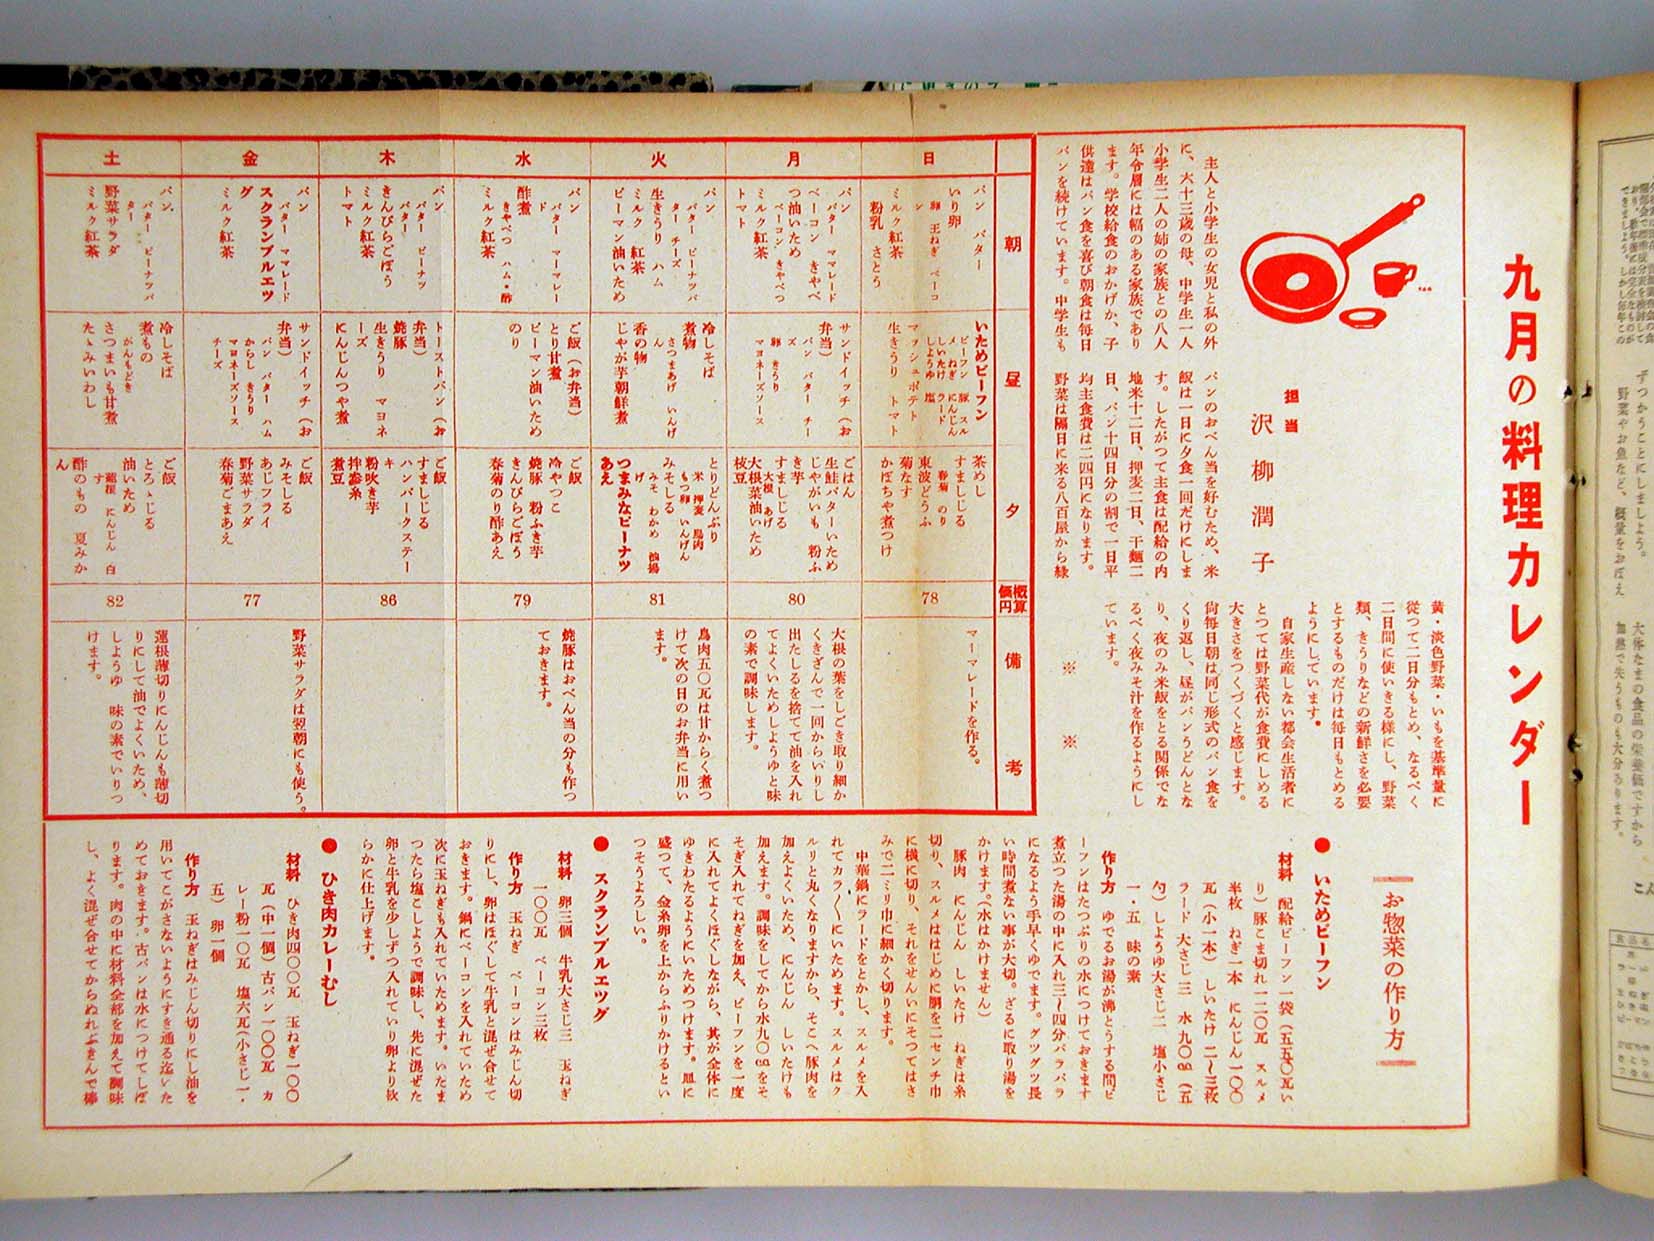 九月の料理カレンダー
担当
沢柳潤子
主人と小学生の女児と私の外
に、六十三歳の母、中学生一人
小学生二人の姉の家族との八人
年令層には幅のある家族であり
ます。学校給食のおかげか、子
供達はパン食を喜び朝食は毎日
パンを続けています。中学生も
パンのおべん当を好むため、米
飯は一日に夕食一回だけにしま
す。したがつて主食は配給の内
地米十二日、押麦二日、干麺二
日、パン十四日分の割で一日平
均主食費は二四円になります。
野菜は隔日に来る八百屋から緑
黄・淡色野菜・いもを基準量に
従つて二日分もとめ、なるべく
二日間に使いきる様にし、野菜
類、きうりなどの新鮮さを必要
とするものだけは毎日もとめる
ようにしています。
自家生産しない都会生活者に
とつては野菜代が食費にしめる
大きさをつくづくと感じます。
尚毎日朝は同じ形式のパン食を
くり返し、昼がパンうどんとな
り、夜のみ米飯をとる関係でな
るべく夜みそ汁を作るようにし
ています。
※ ※
朝
昼
夕
概算価円
備考
日
パン バター
いり卵
卵 玉ねぎ ベーコン
ミルク紅茶
粉乳 さとう
いためビーフン
ビーフン 豚 スルメ ねぎ にんじん しいたけ ラード しようゆ 塩
マッシュポテト
生きうり トマト
茶めし
すましじる
春菊 のり
東波どうふ
菊なす
かぼちや煮つけ
78
マーマレードを作る。
月
パン
バター ママレード
ベーコン きやべつ油いため
ベーコン きやべつ
ミルク紅茶
トマト
サンドイッチ(お弁当)
パン バター チーズ
卵 きうり
マヨネーズソース
ごはん
生鮭バターいため
じやがいも 粉ふき芋
すましじる
大根 あげ
大根菜油いため
枝豆
80
大根の葉をしごき取り細か
くきざんで一回からいりし
出たしるを捨てて油を入れ
てよくいためしようゆと味
の素で調味します。
火
パン
バター ピーナツバター チーズ
生きうり ハム
ミルク 紅茶
ピーマン油いため
冷しそば
煮物
さつまあげ いんげん
香の物
じやが芋朝鮮煮
とりどんぶり
米 押麦 鳥肉
もつ卵 いんげん
みそしる
みそ わかめ 油揚げ
つまみなピーナツあえ
81
鳥肉五〇瓦は甘からく煮つ
けて次の日のお弁当に用い
ます。
水
パン
バター マーマレード
酢煮
きやべつ ハム・酢
ミルク紅茶
ご飯(お弁当)
とり甘煮
ピーマン油いため
のり
ご飯
冷やつこ
焼豚 粉ふき芋
きんぴらごぼう
春菊のり酢あえ
79
焼豚はおべん当の分も作つ
ておきます。
木
パン
バター ピーナツバター
きんぴらごぼう
ミルク紅茶
トマト
トーストパン(お弁当)
焼豚
生きうり マヨネーズ
にんじんつや煮
ご飯
すましじる
ハンバークステーキ
粉吹き芋
拌参糸
煮豆
86
金
パン
バター ママレード
スクランブルエッグ
ミルク紅茶
サンドイッチ(お弁当)
パン バター ハム
からし きうり
マヨネーズソース
チーズ
ご飯
みそしる
あじフライ
野菜サラダ
春菊ごまあえ
77
野菜サラダは翌朝にも使う。
土
パン
バター ピーナツバター
野菜サラダ
ミルク紅茶
冷しそば
煮もの
がんもどき
さつまいも甘煮
たゝみいわし
ご飯
とろゝじる
油いため
蓮根 にんじん 白す
酢のもの 夏みかん
82
蓮根薄切りにんじんも薄切
りにして油でよくいため、
しようゆ 味の素でいりつ
けます。
お惣菜の作り方
●いためビーフン
材料 配給ビーフン一袋(五五〇瓦い
り)豚こま切れ一二〇瓦 スルメ
半枚 ねぎ一本 にんじん一〇〇
瓦(小一本) しいたけ 二〜三枚
ラード大さじ三 水九〇cc(五
勺)しようゆ大さじ二 塩小さじ
一・五 味の素
作り方 ゆでるお湯が沸とうする間ビ
ーフンはたつぷりの水につけておきます
煮立つた湯の中に入れ三〜四分パラパラ
になるよう手早くゆでます。グツグツ長
い時間煮ない事が大切。ざるに取り湯を
かけます。(水はかけません)
豚肉 にんじん しいたけ ねぎは糸
切り、スルメははじめに胴を二センチ巾
に横に切り、それをせんいにそつてはさ
みで二ミリ巾に細かく切ります。
中華鍋にラードをとかし、スルメを入
れてカラ〱にいためます。スルメはク
ルリと丸くなりますから、そこへ豚肉を
加えよくいため、にんじん しいたけも
加えます。調味をしてから水九〇ccをそ
そぎ入れてねぎを加え、ビーフンを一度
に入れてよくほぐしながら、其が全体に
ゆきわたるようにいためつけます。皿に
盛つて、金糸卵を上からふりかけるとい
つそうよろしい。
●スクランブルエッグ
材料 卵三個 牛乳大さじ三 玉ねぎ
一〇〇瓦 ベーコン三枚
作り方 玉ねぎ ベーコンはみじん切
りにし、卵はほぐして牛乳と混ぜ合せて
おきます。鍋にベーコンを入れていため
次に玉ねぎも入れていためます。いたま
つたら塩こしようで調味し、先に混ぜた
卵と牛乳を少しずつ入れていり卵より軟
らかに仕上げます。
●ひき肉カレーむし
材料 ひき肉四〇〇瓦 玉ねぎ一〇〇
瓦(中一個)古パン一〇〇瓦 カ
レー粉一〇瓦 塩六瓦(小さじ一・
五)卵一個
作り方 玉ねぎはみじん切りにし油を
用いてこがさないようにすき通る迄いた
めておきます。古パンは水につけてしぼ
ります。肉の中に材料全部を加えて調味
し、よく混ぜ合せてからぬれぶきんで棒